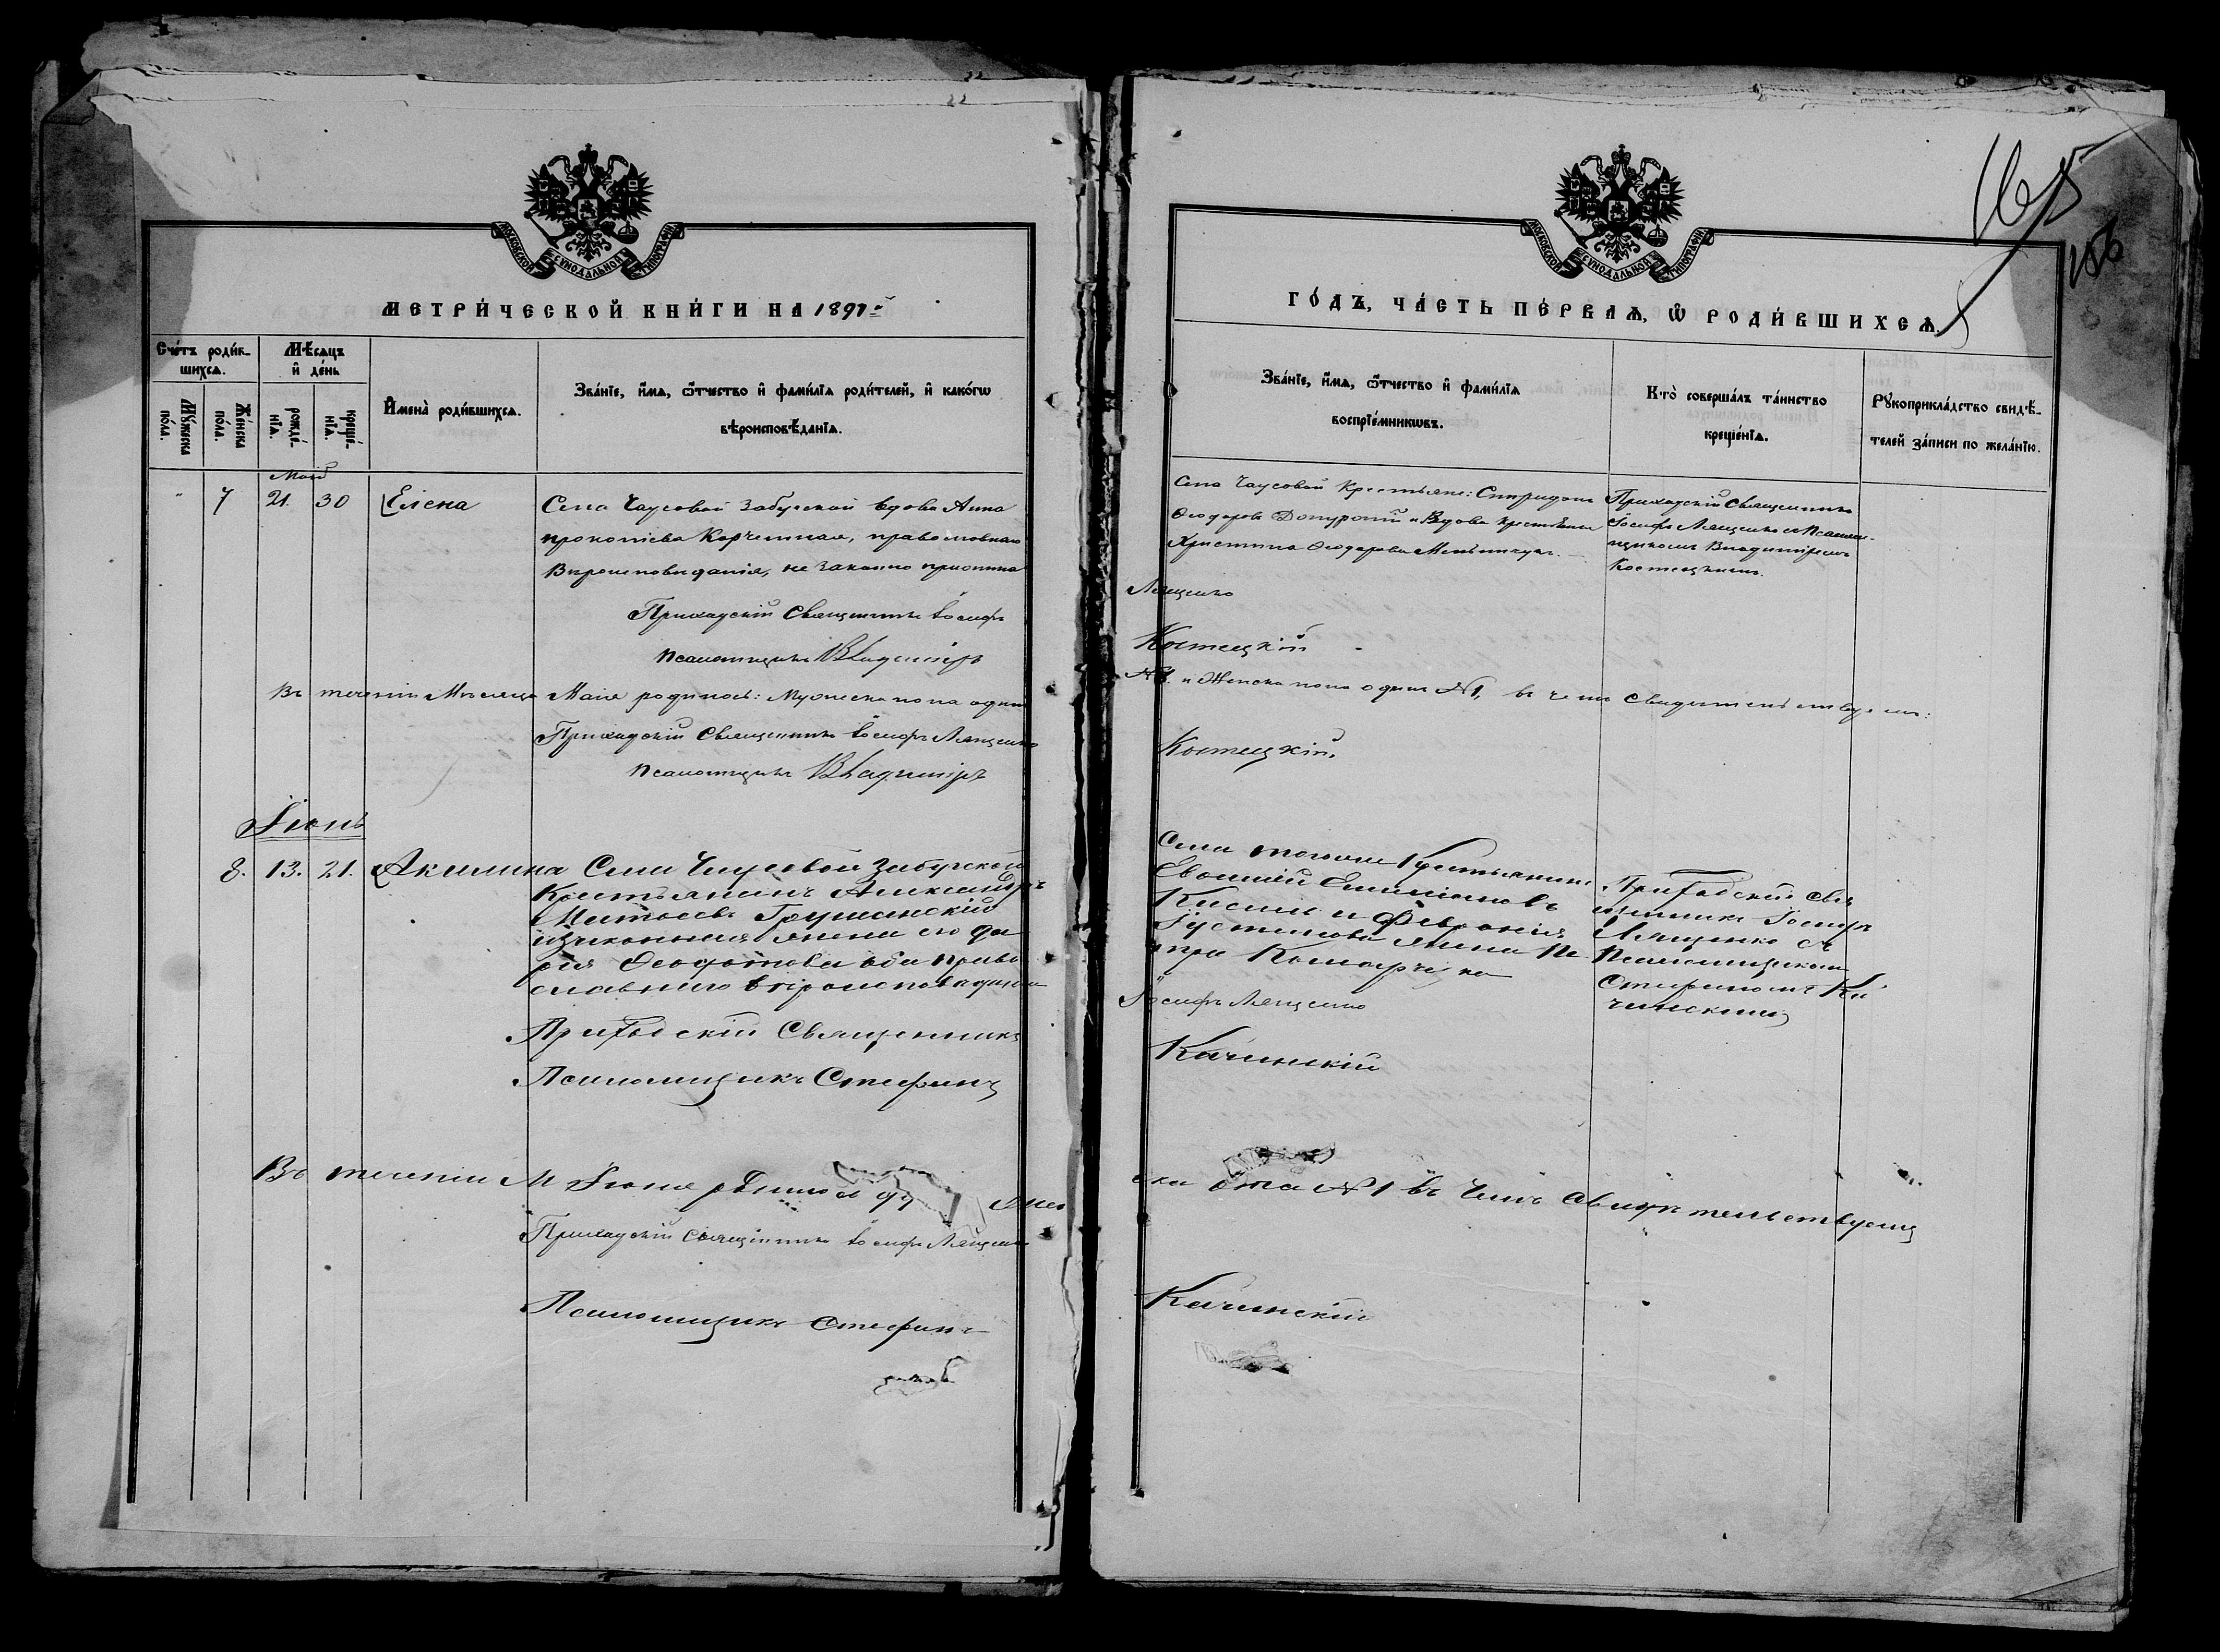 МОСКОВСКОЙ СУНОДАЛЬНОЙ ТИПОГРАФІИ
МЕТРИ́ЧЕСКОЙ КНИ́ГИ НА 1897й
Сче́тъ роди́в-
шихсѧ.
Мѣ́сѧцъ
и҆ де́нь
Мꙋ́жеска
по́ла.
Же́нска
по́ла.
рожде́-
нїѧ.
креще́-
нїѧ.
И҆мена̀ роди́вшихсѧ.
Зва́нїе, и҆́мѧ, ѻ҆́тчество и҆ фами́лїѧ роди́телей, и҆ како́гѡ
вѣроисповѣ́данїѧ.
Май
7 21. 30 Елена
Села Чаусовой Забугской вдова Анна
Прокопіева Корчемная, православнаго
Вѣроисповѣданія, не законно
Приходскій Священникъ Іосифъ
Псаломщикъ Владиміръ
Въ теченіи Мѣсяца Маія родилось: Мужеска пола одинъ
Приходскій Священникъ Іосифъ Лященко
Псаломщикъ Владиміръ
Іюнь
8. 13. 21. Акилина Села Чаусовой Забугской
Крестьянинъ Александръ
Матѳеевъ Грушанскій
и законная жена его Да
рія Ѳеодотова оба право
славнаго вѣроисповѣданія
Приходскій Священникъ
Псаломщикъ Стефанъ
Въ теченіи М Іюня
Приходскій Священникъ Іосифъ Лященко
Псаломщикъ Стефанъ
165
156
МОСКОВСКОЙ СУНОДАЛЬНОЙ ТИПОГРАФІИ
ГО́ДЪ, ЧА́СТЬ ПЕ́РВАѦ, Ѡ҆ РОДИ́ВШИХСѦ.
Зва́нїе, и҆́мѧ, ѻ҆́тчество и҆ фами́лїѧ
воспрїе́мникѡвъ.
Кто̀ соверша́лъ та́инство
креще́нїѧ.
Рꙋкоприкла́дство свидѣ́-
телей за́писи по жела́нїю.
Села Чаусовой Крестьяне: Спиридонъ
Ѳеодоровъ и Вдова крестьянка
Христина Ѳеодорова Мельничукъ.
Приходскій Священникъ
Іосифъ Лященко съ Псалом-
щикомъ Владиміромъ
Костецкимъ.
Лященко
Костецкій
№1. и Женска пола одинъ №1, въ чемъ Свидѣтельствуемъ:
Костецкій.
Села тогоже Крестьянинъ
Евѳимій Емиліановъ
и Февронія
Іустинова жена Пе
тра
Приходскій Свя
щенникъ Іосифъ
Лященко съ
Псаломщикомъ
Стефаномъ Ка
чинскимъ
Іосифъ Лященко
Качинскій
ска пола №1 въ чемъ свидѣтельствуемъ
Качинскій